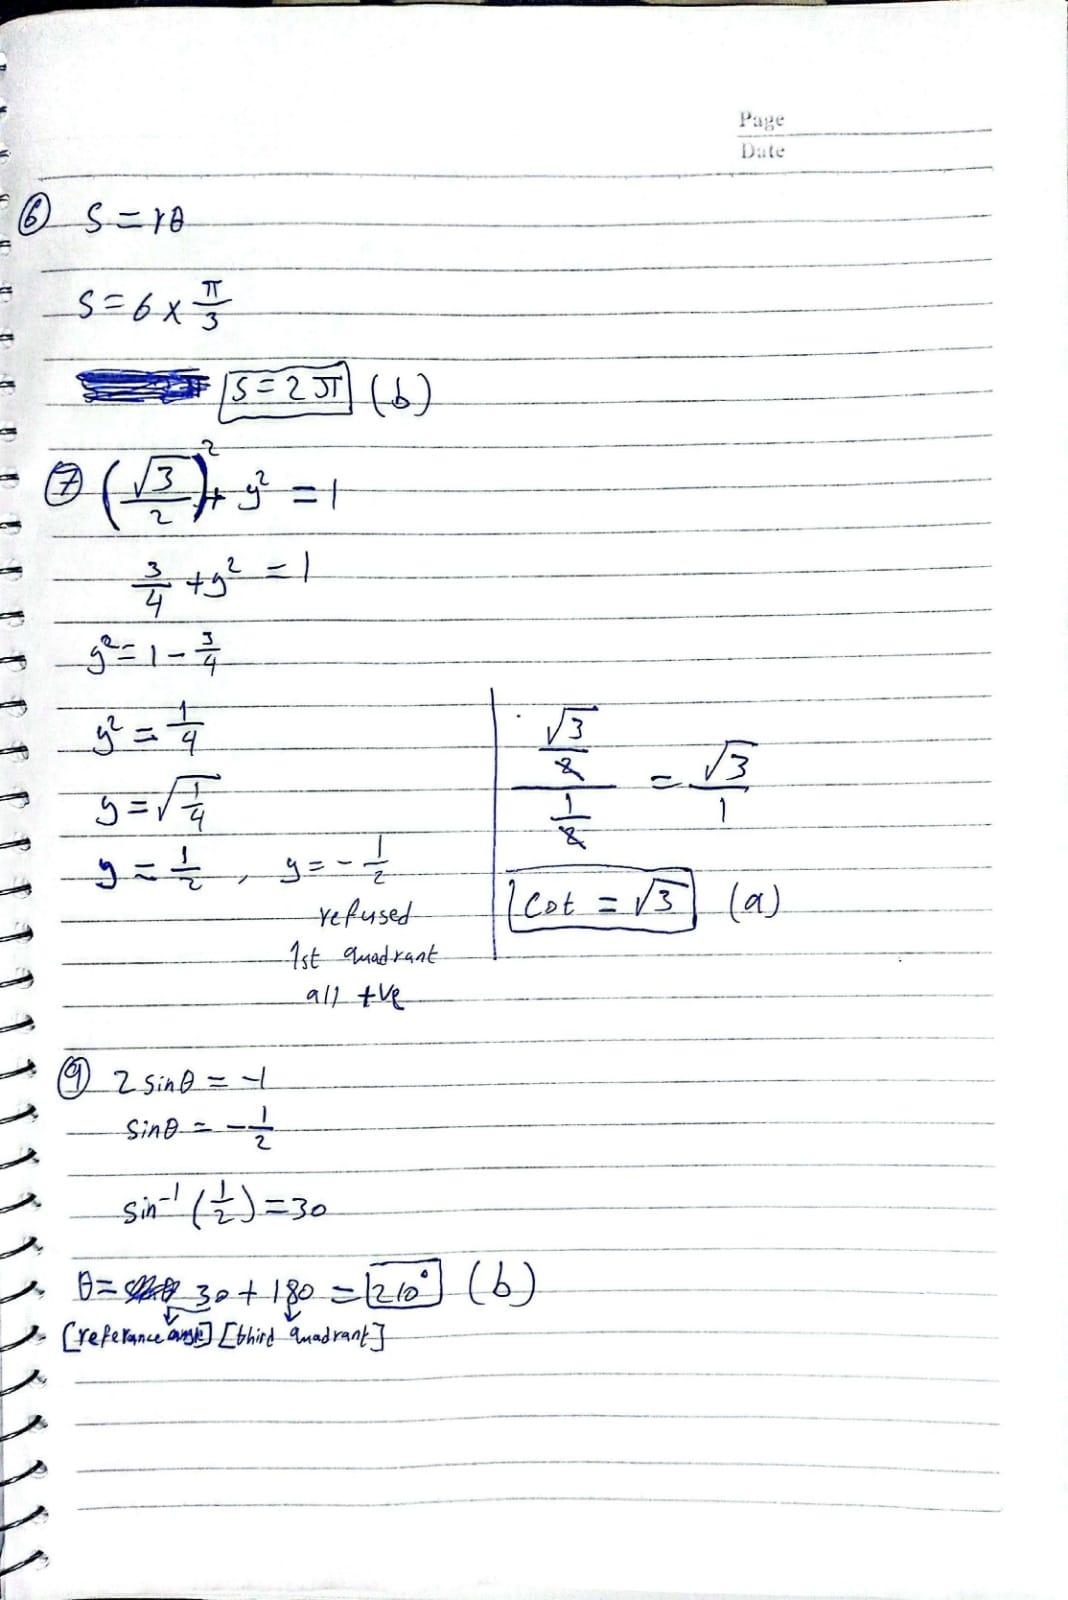 Page
Date
⑥ S = rθ
S = 6 × π/3
S = 2π (b)
⑦ (√3/2)² + y² = 1
3/4 + y² = 1
y² = 1 - 3/4
y² = 1/4
y = √(1/4)
y = 1/2 , y = - 1/2
refused
1st quadrant
all +ve
(√3/2)/(1/2) = √3/1
cot = √3 (a)
⑨ 2 sinθ = -1
sinθ = - 1/2
sin⁻¹ (1/2) = 30
θ = 30 + 180 = 210° (b)
[referance angle] [third quadrant]